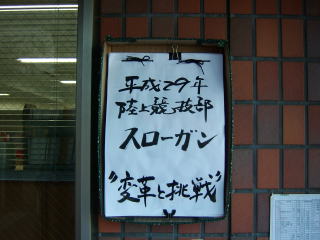 平成29年
陸上競技部
スローガン
"変革と挑戦"